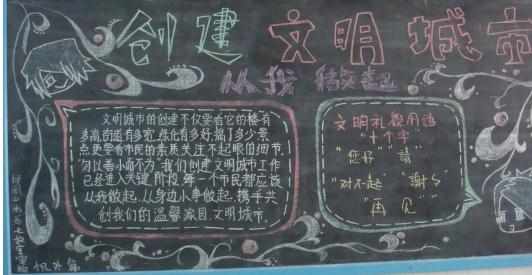 创建文明城市
从我
文明城市的创建不仅要看它的楼有
多高街道有多宽绿化有多好,搞了多少景
点更要看市民的素质关注不起眼的细节,
"勿以善小而不为"我们创建文明城市工作
已经进入关键阶段每一个市民都应该
从我做起,从身边小事做起,携手共
创我们的温馨家园,文明城市。
文明礼貌用语
"十个字"
"您好" "請"
"对不起" "谢谢"
"再见"